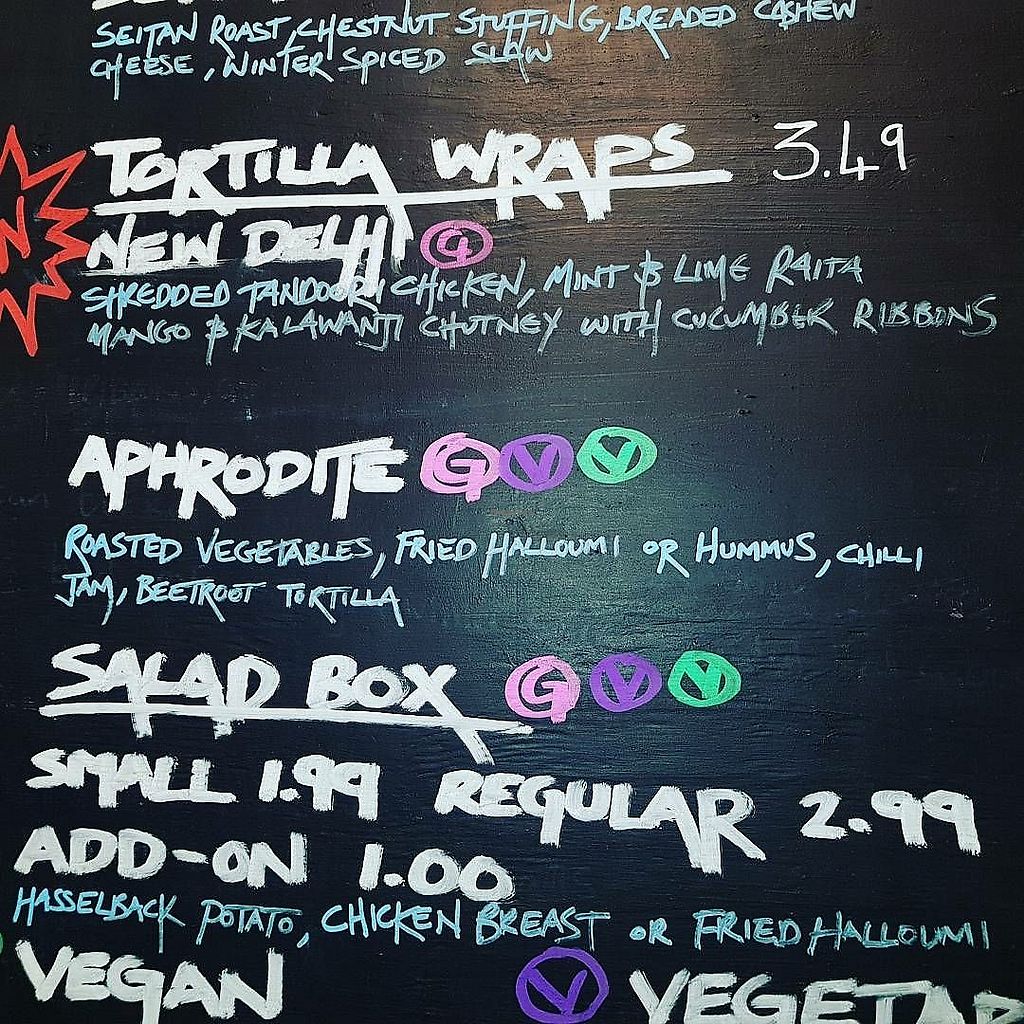 SEITAN ROAST, CHESTNUT STUFFING, BREADED CASHEW
CHEESE, WINTER SPICED SLAW
TORTILLA WRAPS 3.49
NEW DELHI G
SHREDDED TANDOORI CHICKEN, MINT & LIME RAITA
MANGO & KALAWANJI CHUTNEY WITH CUCUMBER RIBBONS
APHRODITE G V V
ROASTED VEGETABLES, FRIED HALLOUMI OR HUMMUS, CHILLI
JAM, BEETROOT TORTILLA
SALAD BOX G V V
SMALL 1.99 REGULAR 2.99
ADD-ON 1.00
HASSELBACK POTATO, CHICKEN BREAST OR FRIED HALLOUMI
VEGAN V VEGETAR